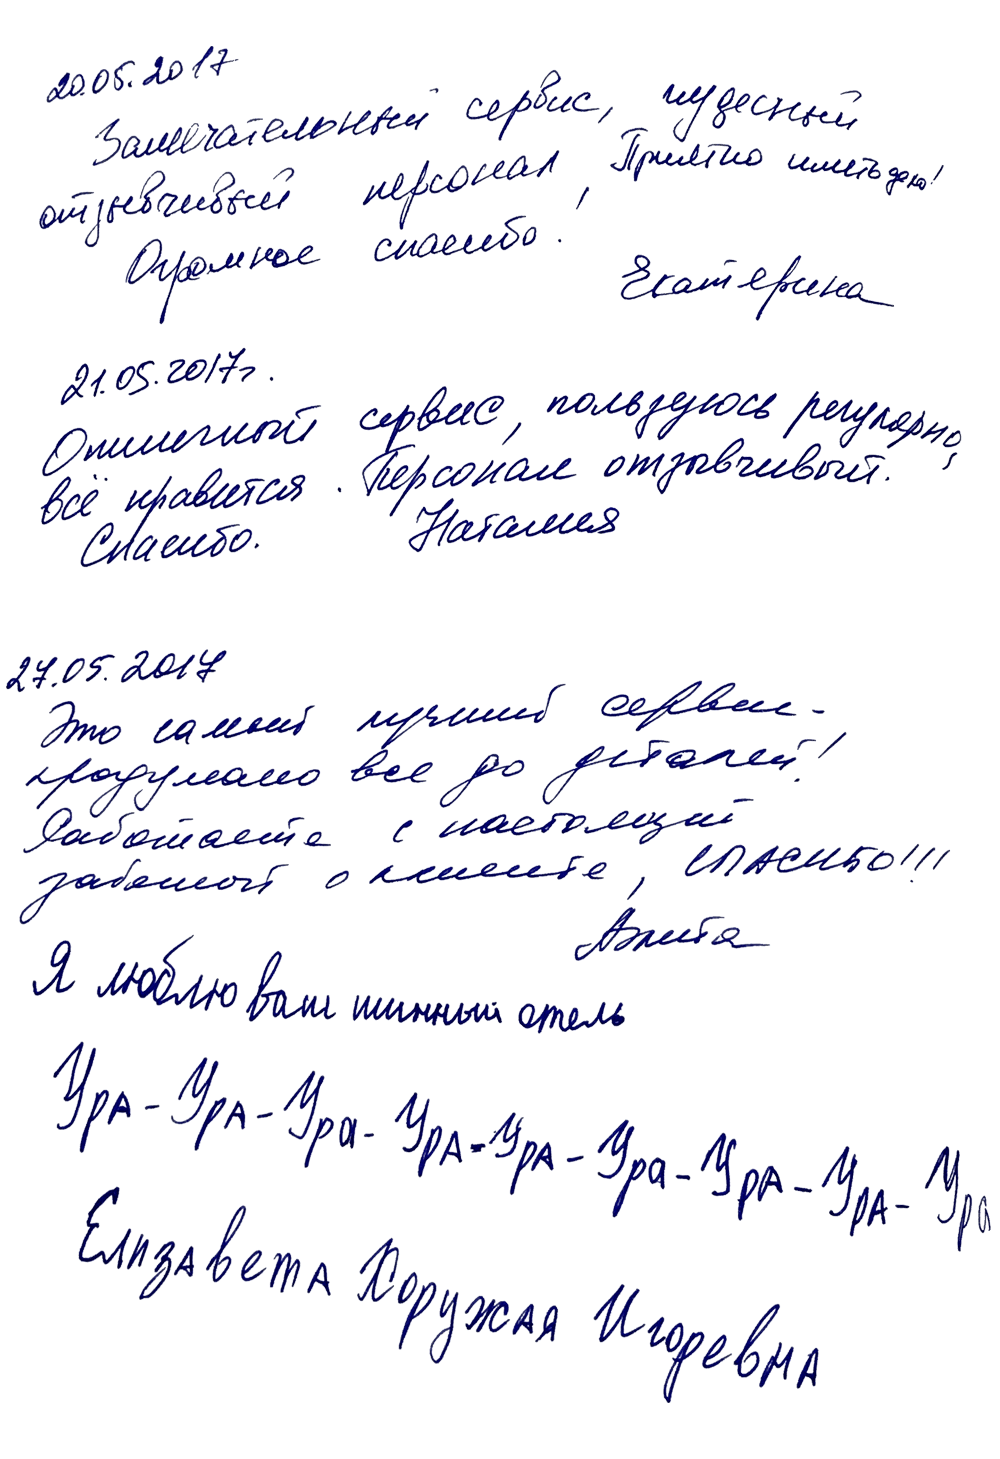 20.05.2017
Замечательный сервис, чудесный
отзывчивый персонал! Приятно иметь дело!
Огромное спасибо!
Екатерина
21.05.2017г.
Отличный сервис, пользуюсь регулярно,
всё нравится. Персонал отзывчивый.
Спасибо. Наталия
27.05.2017
Это самый лучший сервис -
продумано все до деталей!
Работаете с настоящей
заботой о клиенте, СПАСИБО!!!
Аэлита
Я люблю ваш шинный отель
Ура - Ура - Ура - Ура - Ура - Ура - Ура - Ура - Ура
Елизавета Хоружая Игоревна